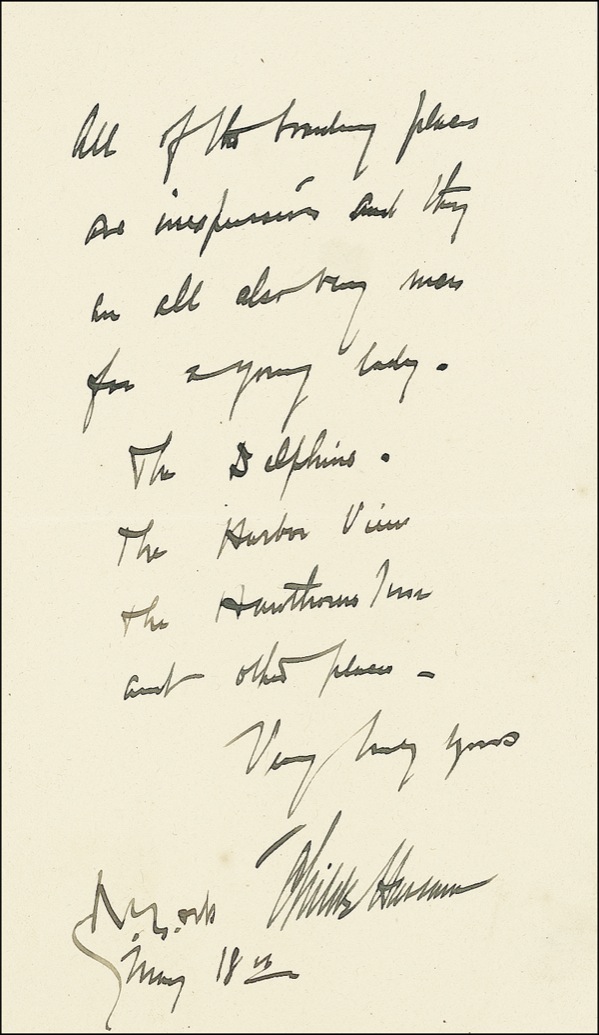 All of the boarding places
are inexpensive and they
are all also very nice
for a young lady.
The Delphine.
The Harbor View
The Hawthorne Inn
and other places –
Very truly yours
Childe Hassam
N.Y.
May 18th